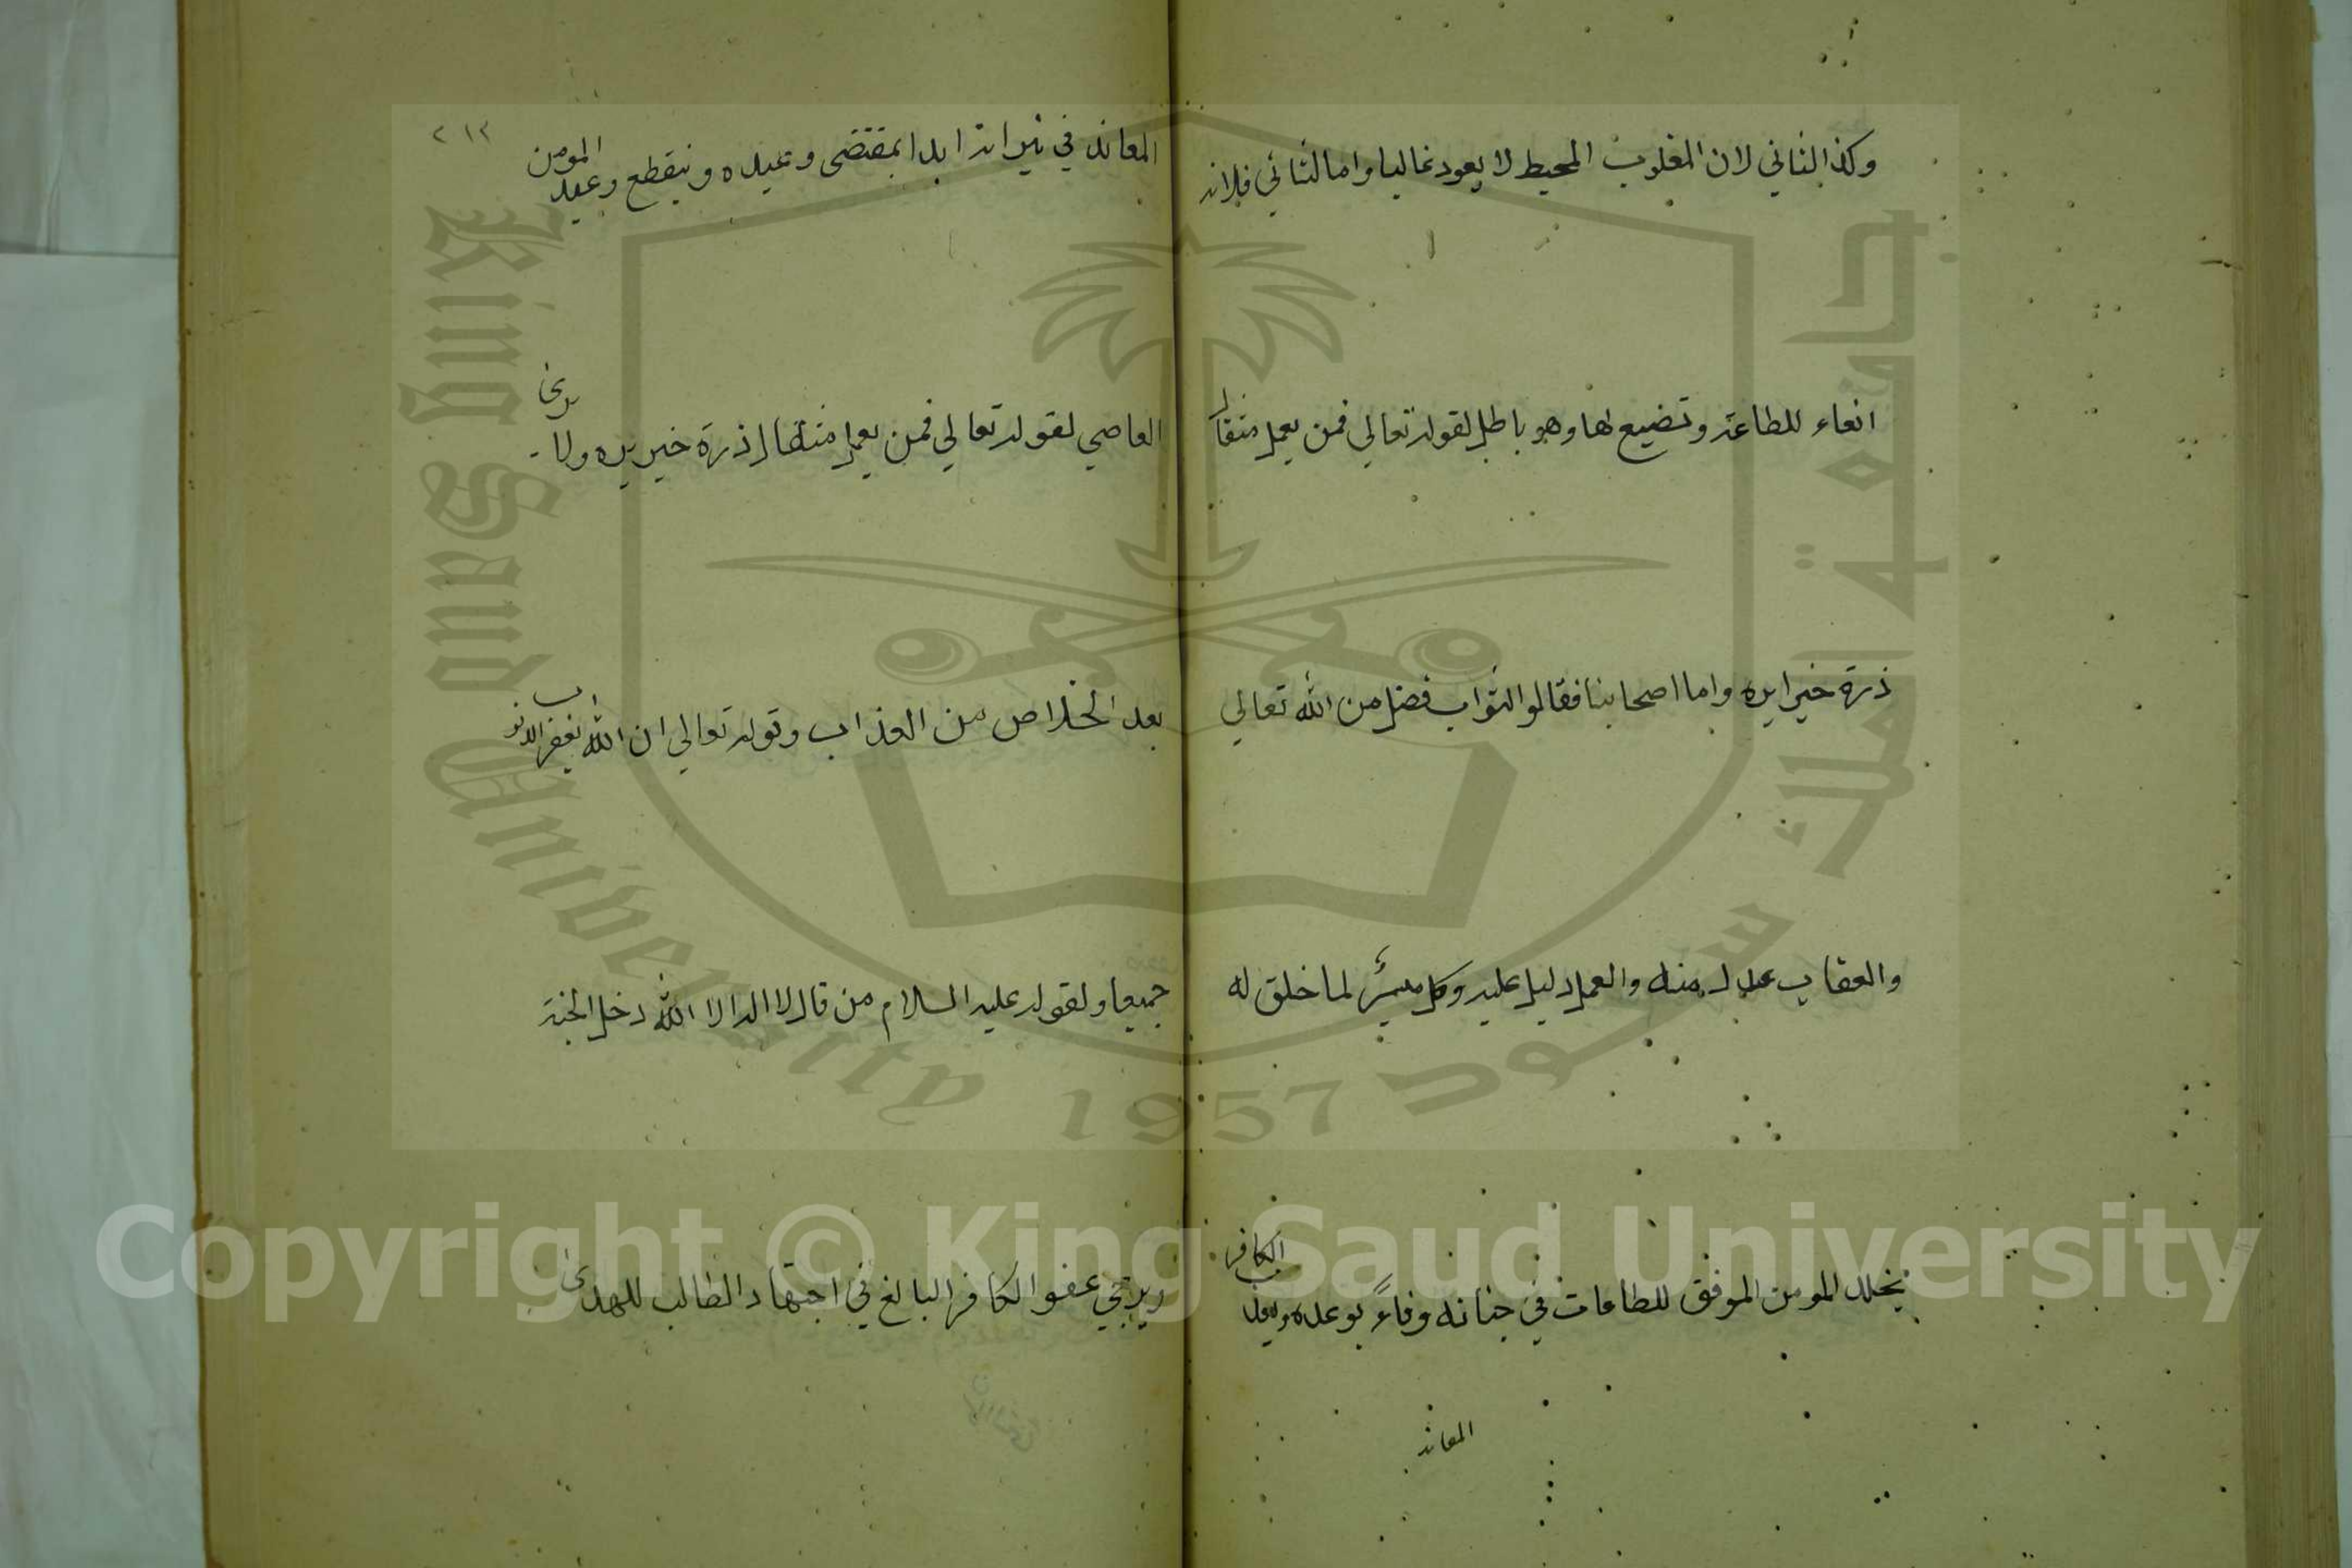 وكذا الثاني لان المغلوب المحيط لا يعود غالبا واما الثاني فلانه
الغاء للطاعة وتضييع لها وهو باطل لقوله تعالي فمن يعمل مثقال
ذرة خيرا يره واما اصحابنا فقالوا الثواب فضل من الله تعالي
والعقاب عدل منه والعمل دليل عليه وكل ميسر لما خلق له
يخلد المومن الموفق للطاعات في جنانه وفاءً بوعده الكافر
المعاند
٢١٢
المعاند في نيرانه ابدا بمقتضى وعيده وينقطع وعيد المومن
العاصي لقوله تعالي فمن يعمل مثقال ذرة خير يره ولا يرى
بعد الخلاص من العذاب وقوله تعالي ان الله يغفر الذنوب
جميعا ولقوله عليه السلام من قال لا اله الا الله دخل الجنة
ويرتجي عفو الكافر البالغ في اجتهاد الطالب للهدى
King Saud University
1957
جامعة الملك سعود
Copyright © King Saud University